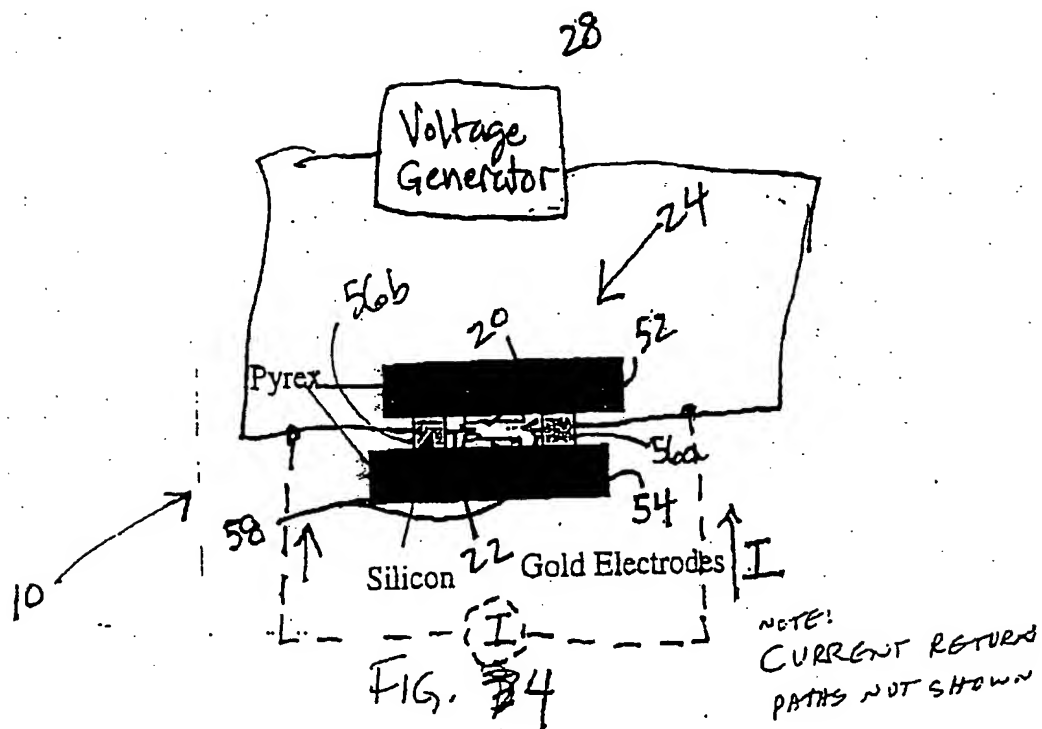 28
Voltage
Generator
24
56b
20
52
Pyrex
56a
54
58
22
Silicon
Gold Electrodes
I
10
I
FIG. 4
NOTE!
CURRENT RETURN
PATHS NOT SHOWN